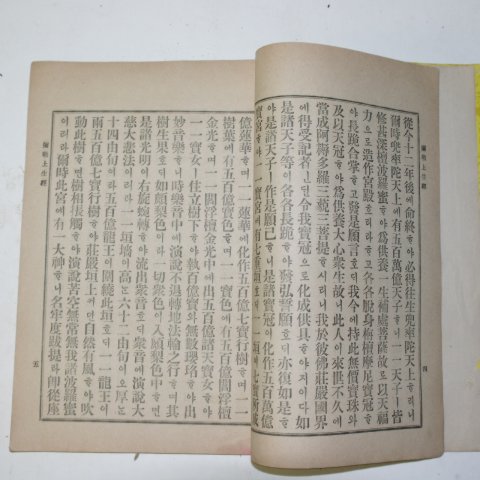 彌勒上生經
四
從今十二年後에命終ᄒᆞ야必得往生兜率陀天上ᄒᆞ리니
爾時兜率陀天上에有五百萬億天子호ᄃᆡ一一天子ㅣ皆
修甚深檀波羅蜜ᄒᆞ야爲供養一生補處菩薩故로以天福
力으로造作宮殿ᄒᆞ리라ᄒᆞ고各各脫身栴檀摩尼寶冠ᄒᆞ
야長跪合掌ᄒᆞ고發是願言호ᄃᆡ我今에持此無價寶珠와
及以天冠ᄒᆞ야爲供養大心衆生故니此人이來世不久에
當成阿耨多羅三藐三菩提ᄒᆞ시리니我於彼佛莊嚴國界
에得受記者ㄴ댄令我寶冠으로化成供具ᄒᆞ야지이다如
是諸天子等이各各長跪ᄒᆞ야發弘誓願호ᄃᆡ亦復如是ᄒᆞ
야是諸天子ㅣ作是願已ᄒᆞ니是諸寶冠이化作五百萬億
寶宮ᄒᆞ야一一寶宮에有七重垣호ᄃᆡ一一垣에七寶所成
億蓮華ᄒᆞ며一一蓮華에化作五百億七寶行樹ᄒᆞ며一一
樹葉에有五百億寶色ᄒᆞ며一一寶色에有五百億閻浮檀
金光ᄒᆞ며一一閻浮檀金光中에出五百億諸天寶女ᄒᆞ야
一一寶女ㅣ住立樹下ᄒᆞ야執百億寶와無數瓔珞ᄒᆞ야出
妙音樂ᄒᆞ니時樂音中에演說不退轉地法輪之行ᄒᆞ며其
樹生果호ᄃᆡ如頗梨色이라一切衆色이入頗梨色中ᄒᆞ며
是諸光明이右旋婉轉ᄒᆞ야流出衆音호ᄃᆡ衆音에演說大
慈大悲法이러라一一垣墻이高ᄂᆞᆫ六十二由旬이오厚ᄂᆞᆫ
十四由旬이라五百億龍王이圍繞此垣호ᄃᆡ一一龍王이
雨五百億七寶行樹ᄒᆞ야莊嚴垣上커든自然有風ᄒᆞ야吹
動此樹ᄒᆞ면樹相振觸ᄒᆞ야演說苦空無常無我諸波羅蜜
이러라爾時此宮에有一大神호ᄃᆡ名牢度跋提라卽從座
彌勒上生經
五